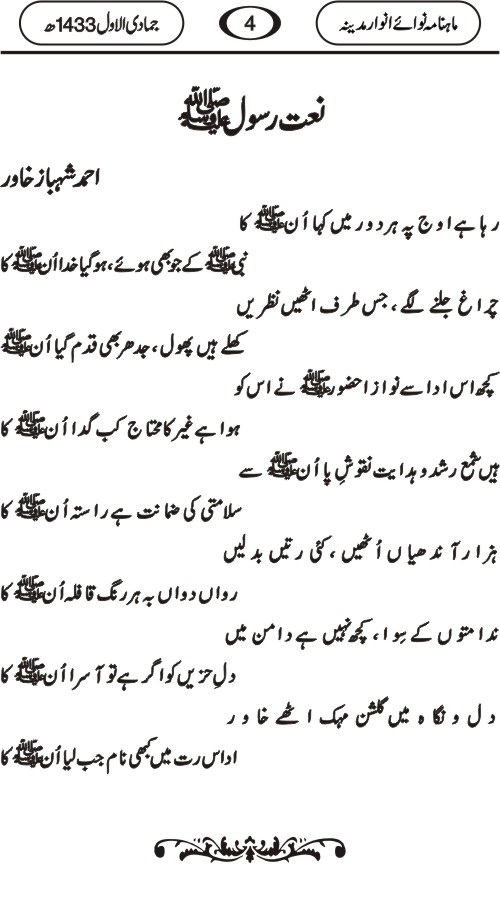 ماہنامہ نوائے انوار مدینہ
4
جمادی الاول 1433ھ
نعت رسول ﷺ
احمد شہباز خاور
رہا ہے اوج پہ ہر دور میں کہا اُن ﷺ کا
نبی ﷺ کے جو بھی ہوئے، ہو گیا خدا اُن ﷺ کا
چراغ جلنے لگے، جس طرف اٹھیں نظریں
کھلے ہیں پھول، جدھر بھی قدم گیا اُن ﷺ کا
کچھ اس ادا سے نوازا حضور ﷺ نے اس کو
ہوا ہے غیر کا محتاج کب گدا اُن ﷺ کا
ہیں شمع رشد و ہدایت نقوشِ پا اُن ﷺ سے
سلامتی کی ضمانت ہے راستہ اُن ﷺ کا
ہزار آندھیاں اُٹھیں، کئی رتیں بدلیں
رواں دواں بہ ہر رنگ قافلہ اُن ﷺ کا
ندامتوں کے سِوا، کچھ نہیں ہے دامن میں
دلِ حزیں کو اگر ہے تو آسرا اُن ﷺ کا
دل و نگاہ میں گلشن مہک اٹھے خاور
اداس رت میں کبھی نام جب لیا اُن ﷺ کا